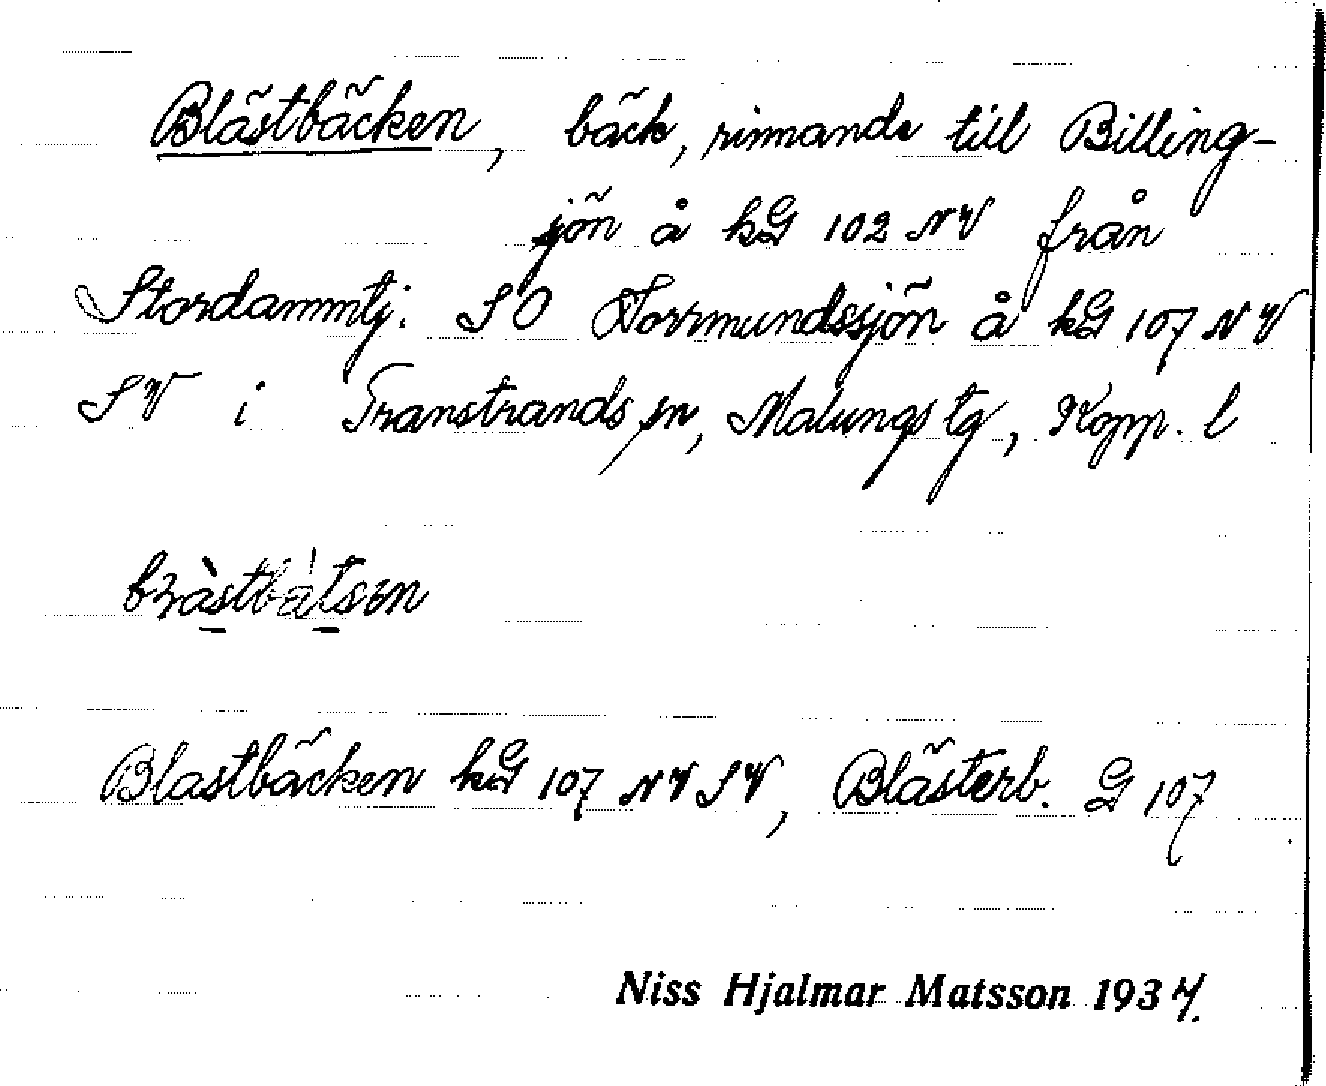 Blästbäcken, bäck, rinnande till Billing-
sjön å kG 102 NV från
Stordammtj. SO Horrmundssjön å kG 107 NV
SV i Transtrands sn, Malungs tg, Kopp. l
Blastbäcken kG 107 NV SV, Blästerb. G 107
Niss Hjalmar Matsson 1937.